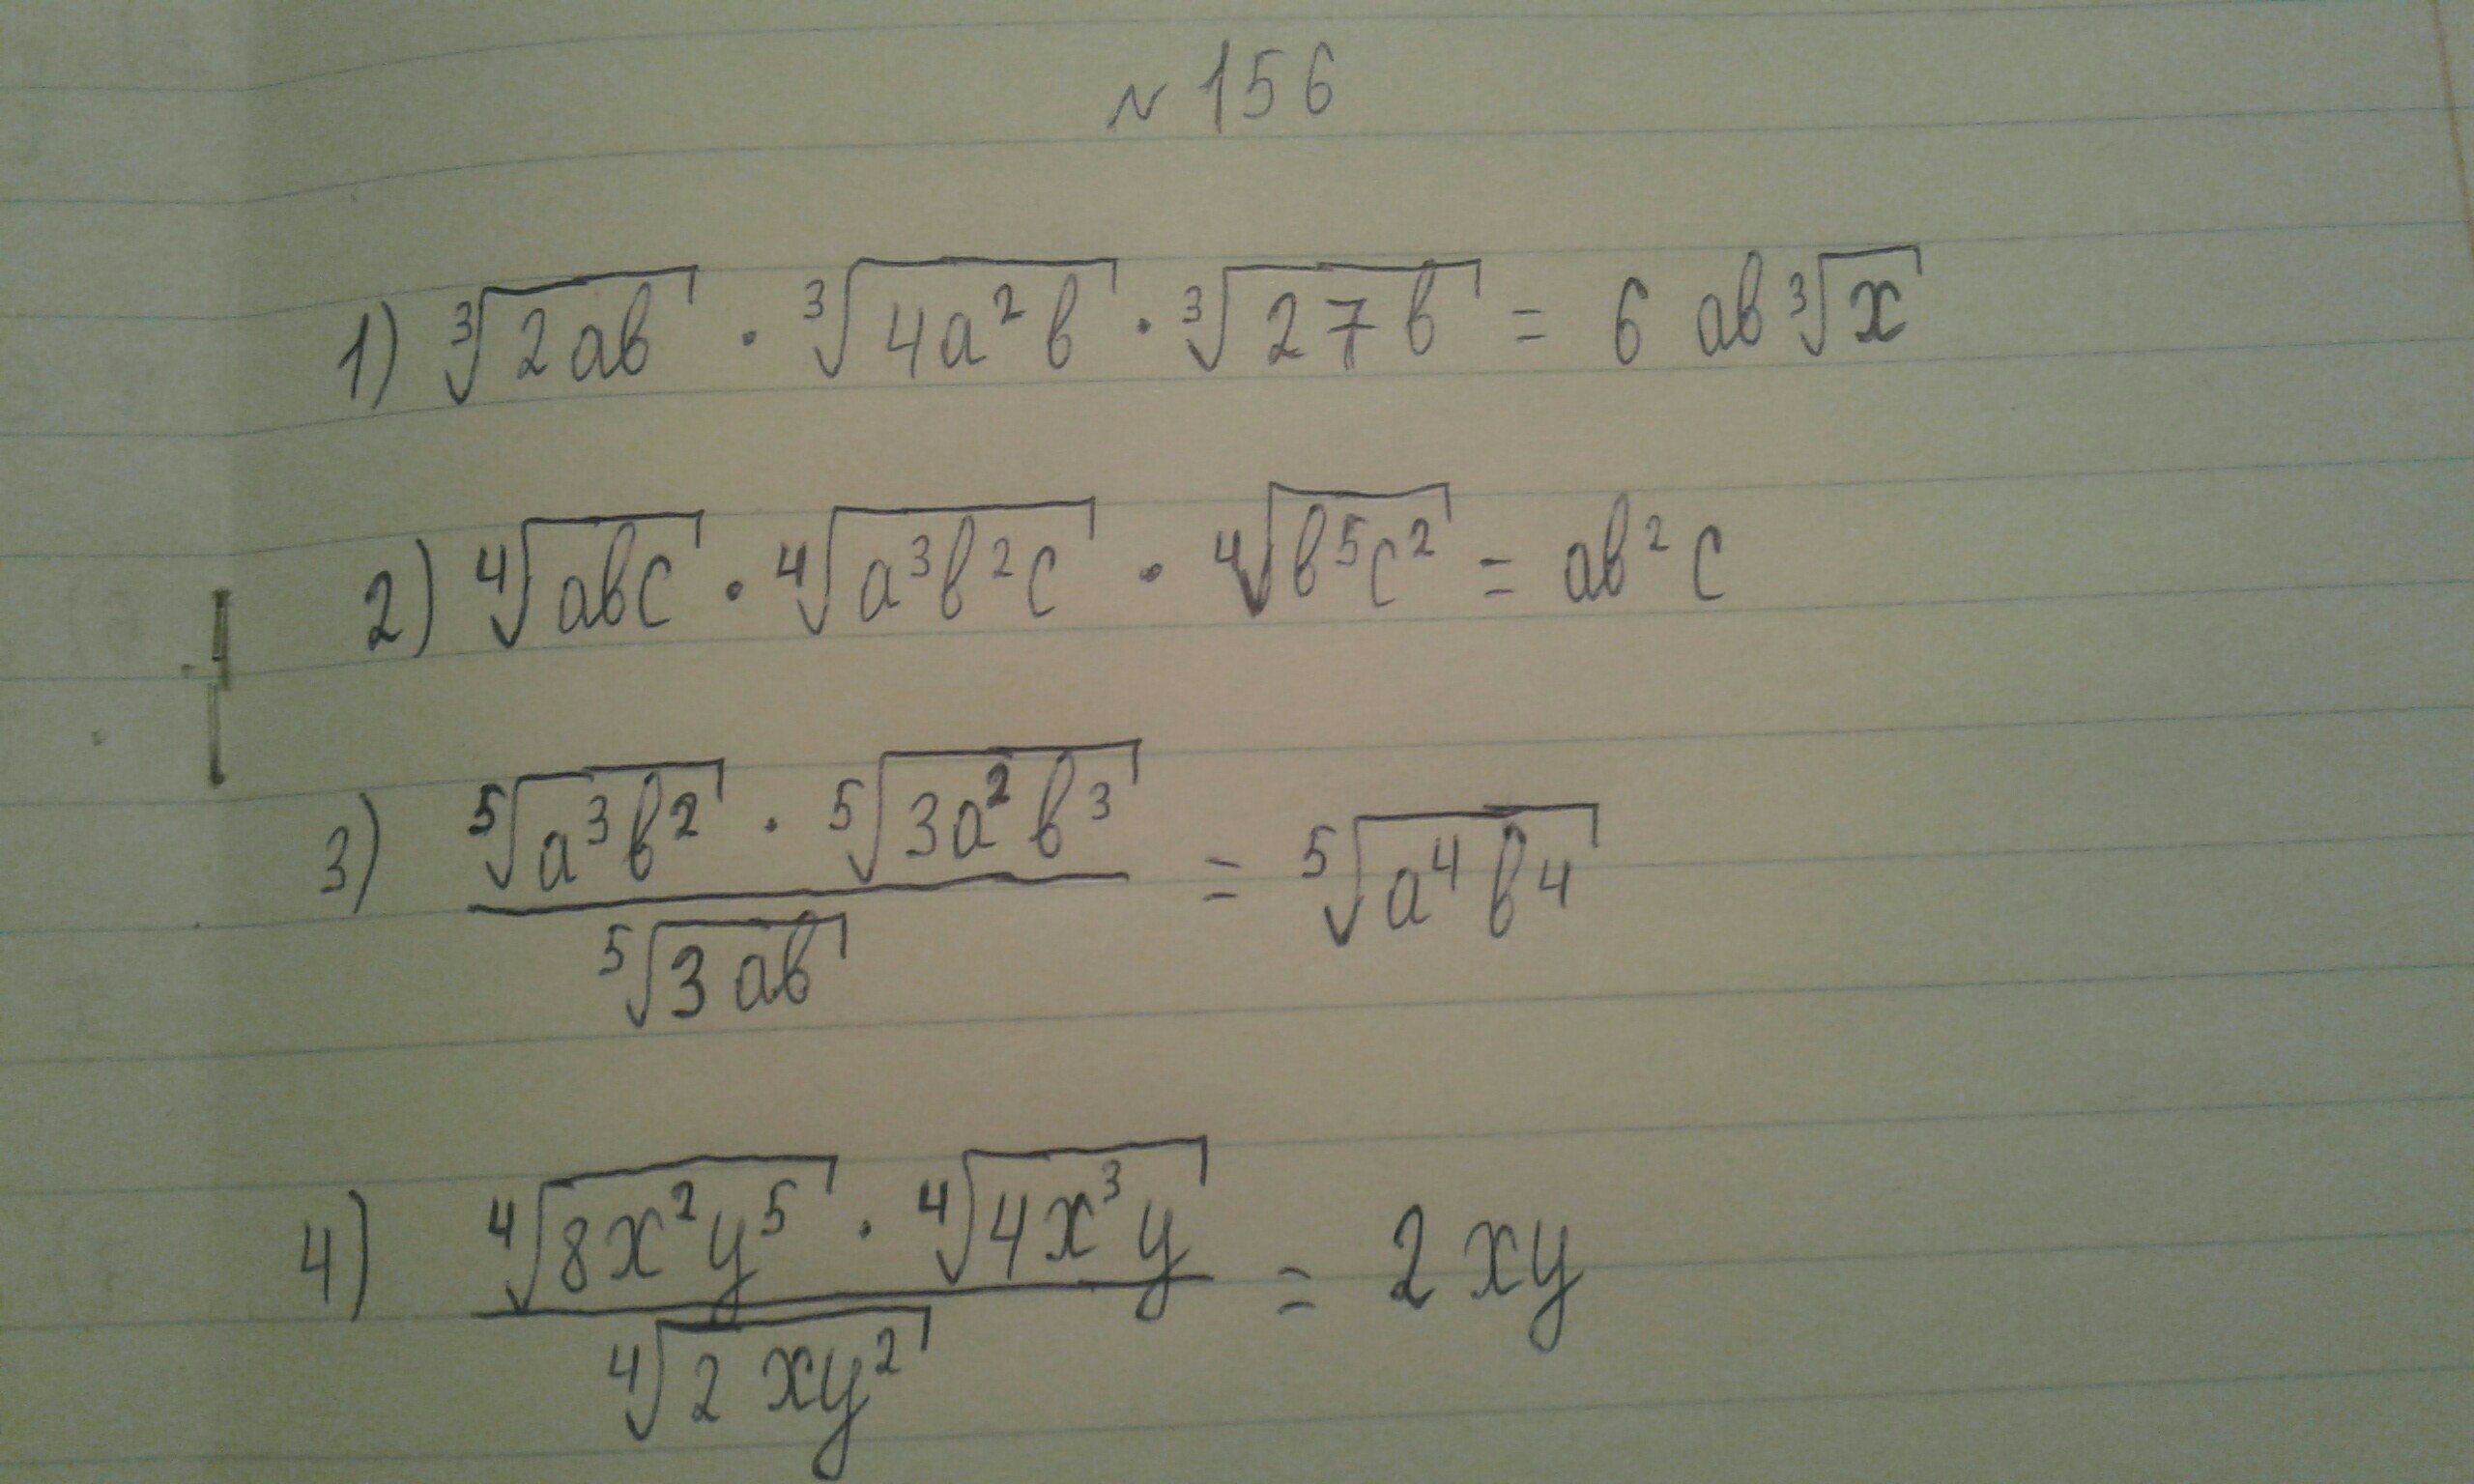 № 156
1) ∛(2ab) · ∛(4a²b) · ∛(27b) = 6 ab ∛x
2) ∜(abc) · ∜(a³b²c) · ∜(b⁵c²) = ab²c
3) (⁵√(a³b²) · ⁵√(3a²b³)) / ⁵√(3ab) = ⁵√(a⁴b⁴)
4) (∜(8x²y⁵) · ∜(4x³y)) / ∜(2xy²) = 2xy